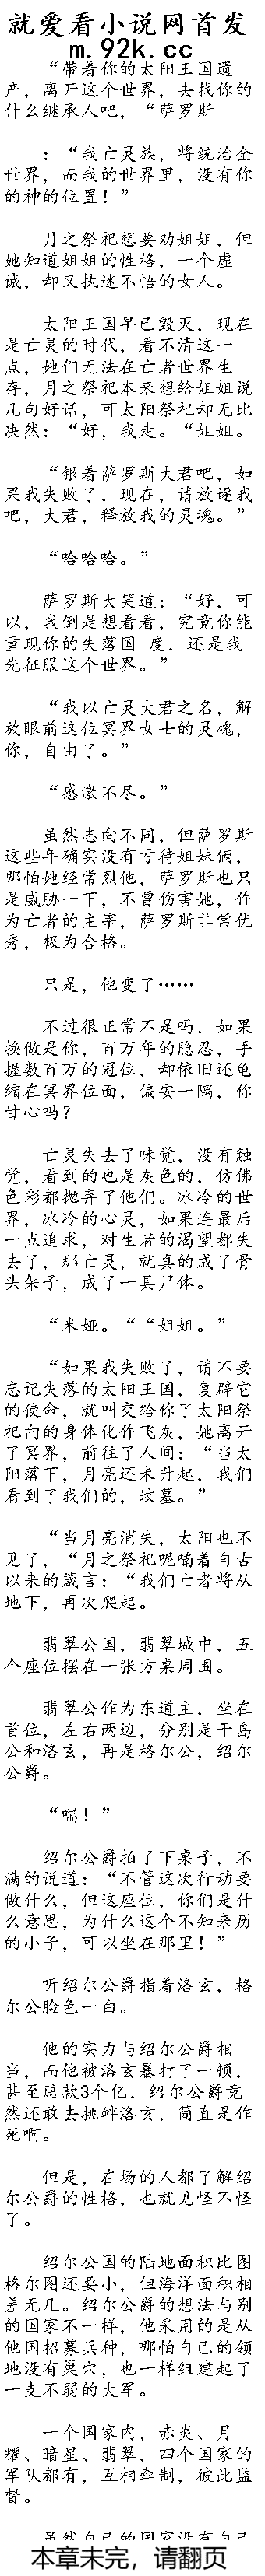 就爱看小说网首发
m.92k.cc
“带着你的太阳王国遗
产，离开这个世界，去找你的
什么继承人吧，“萨罗斯
：“我亡灵族，将统治全
世界，而我的世界里，没有你
的神的位置！”
月之祭祀想要劝姐姐，但
她知道姐姐的性格，一个虔
诚，却又执迷不悟的女人。
太阳王国早已毁灭，现在
是亡灵的时代，看不清这一
点，她们无法在亡者世界生
存，月之祭祀本来想给姐姐说
几句好话，可太阳祭祀却无比
决然：“好，我走。“姐姐。
“银着萨罗斯大君吧，如
果我失败了，现在，请放逐我
吧，大君，释放我的灵魂。”
“哈哈哈。”
萨罗斯大笑道：“好，可
以，我倒是想看看，究竟你能
重现你的失落国 度，还是我
先征服这个世界。”
“我以亡灵大君之名，解
放眼前这位冥界女士的灵魂，
你，自由了。”
“感激不尽。”
虽然志向不同，但萨罗斯
这些年确实没有亏待姐妹俩，
哪怕她经常烈他，萨罗斯也只
是威胁一下，不曾伤害她，作
为亡者的主宰，萨罗斯非常优
秀，极为合格。
只是，他变了……
不过很正常不是吗，如果
换做是你，百万年的隐忍，手
握数百万的冠位，却依旧还龟
缩在冥界位面，偏安一隅，你
甘心吗？
亡灵失去了味觉，没有触
觉，看到的也是灰色的，仿佛
色彩都抛弃了他们。冰冷的世
界，冰冷的心灵，如果连最后
一点追求，对生者的渴望都失
去了，那亡灵，就真的成了骨
头架子，成了一具尸体。
“米娅。““姐姐。”
“如果我失败了，请不要
忘记失落的太阳王国，复辟它
的使命，就叫交给你了太阳祭
祀向的身体化作飞灰，她离开
了冥界，前往了人间：“当太
阳落下，月亮还未升起，我们
看到了我们的，坟墓。”
“当月亮消失，太阳也不
见了，“月之祭祀呢喃着自古
以来的箴言：“我们亡者将从
地下，再次爬起。
翡翠公国，翡翠城中，五
个座位摆在一张方桌周围。
翡翠公作为东道主，坐在
首位，左右两边，分别是干岛
公和洛玄，再是格尔公，绍尔
公爵。
“喘！”
绍尔公爵拍了下桌子，不
满的说道：“不管这次行动要
做什么，但这座位，你们是什
么意思，为什么这个不知来历
的小子，可以坐在那里！”
听绍尔公爵指着洛玄，格
尔公脸色一白。
他的实力与绍尔公爵相
当，而他被洛玄暴打了一顿，
甚至赔款3个亿，绍尔公爵竟
然还敢去挑衅洛玄，简直是作
死啊。
但是，在场的人都了解绍
尔公爵的性格，也就见怪不怪
了。
绍尔公国的陆地面积比图
格尔图还要小，但海洋面积相
差无几。绍尔公爵的想法与别
的国家不一样，他采用的是从
他国招募兵种，哪怕自己的领
地没有巢穴，也一样组建起了
一支不弱的大军。
一个国家内，赤炎、月
耀、暗星、翡翠，四个国家的
军队都有，互相牵制，彼此监
督。
虽然自己的国家没有自己
本章未完，请翻页